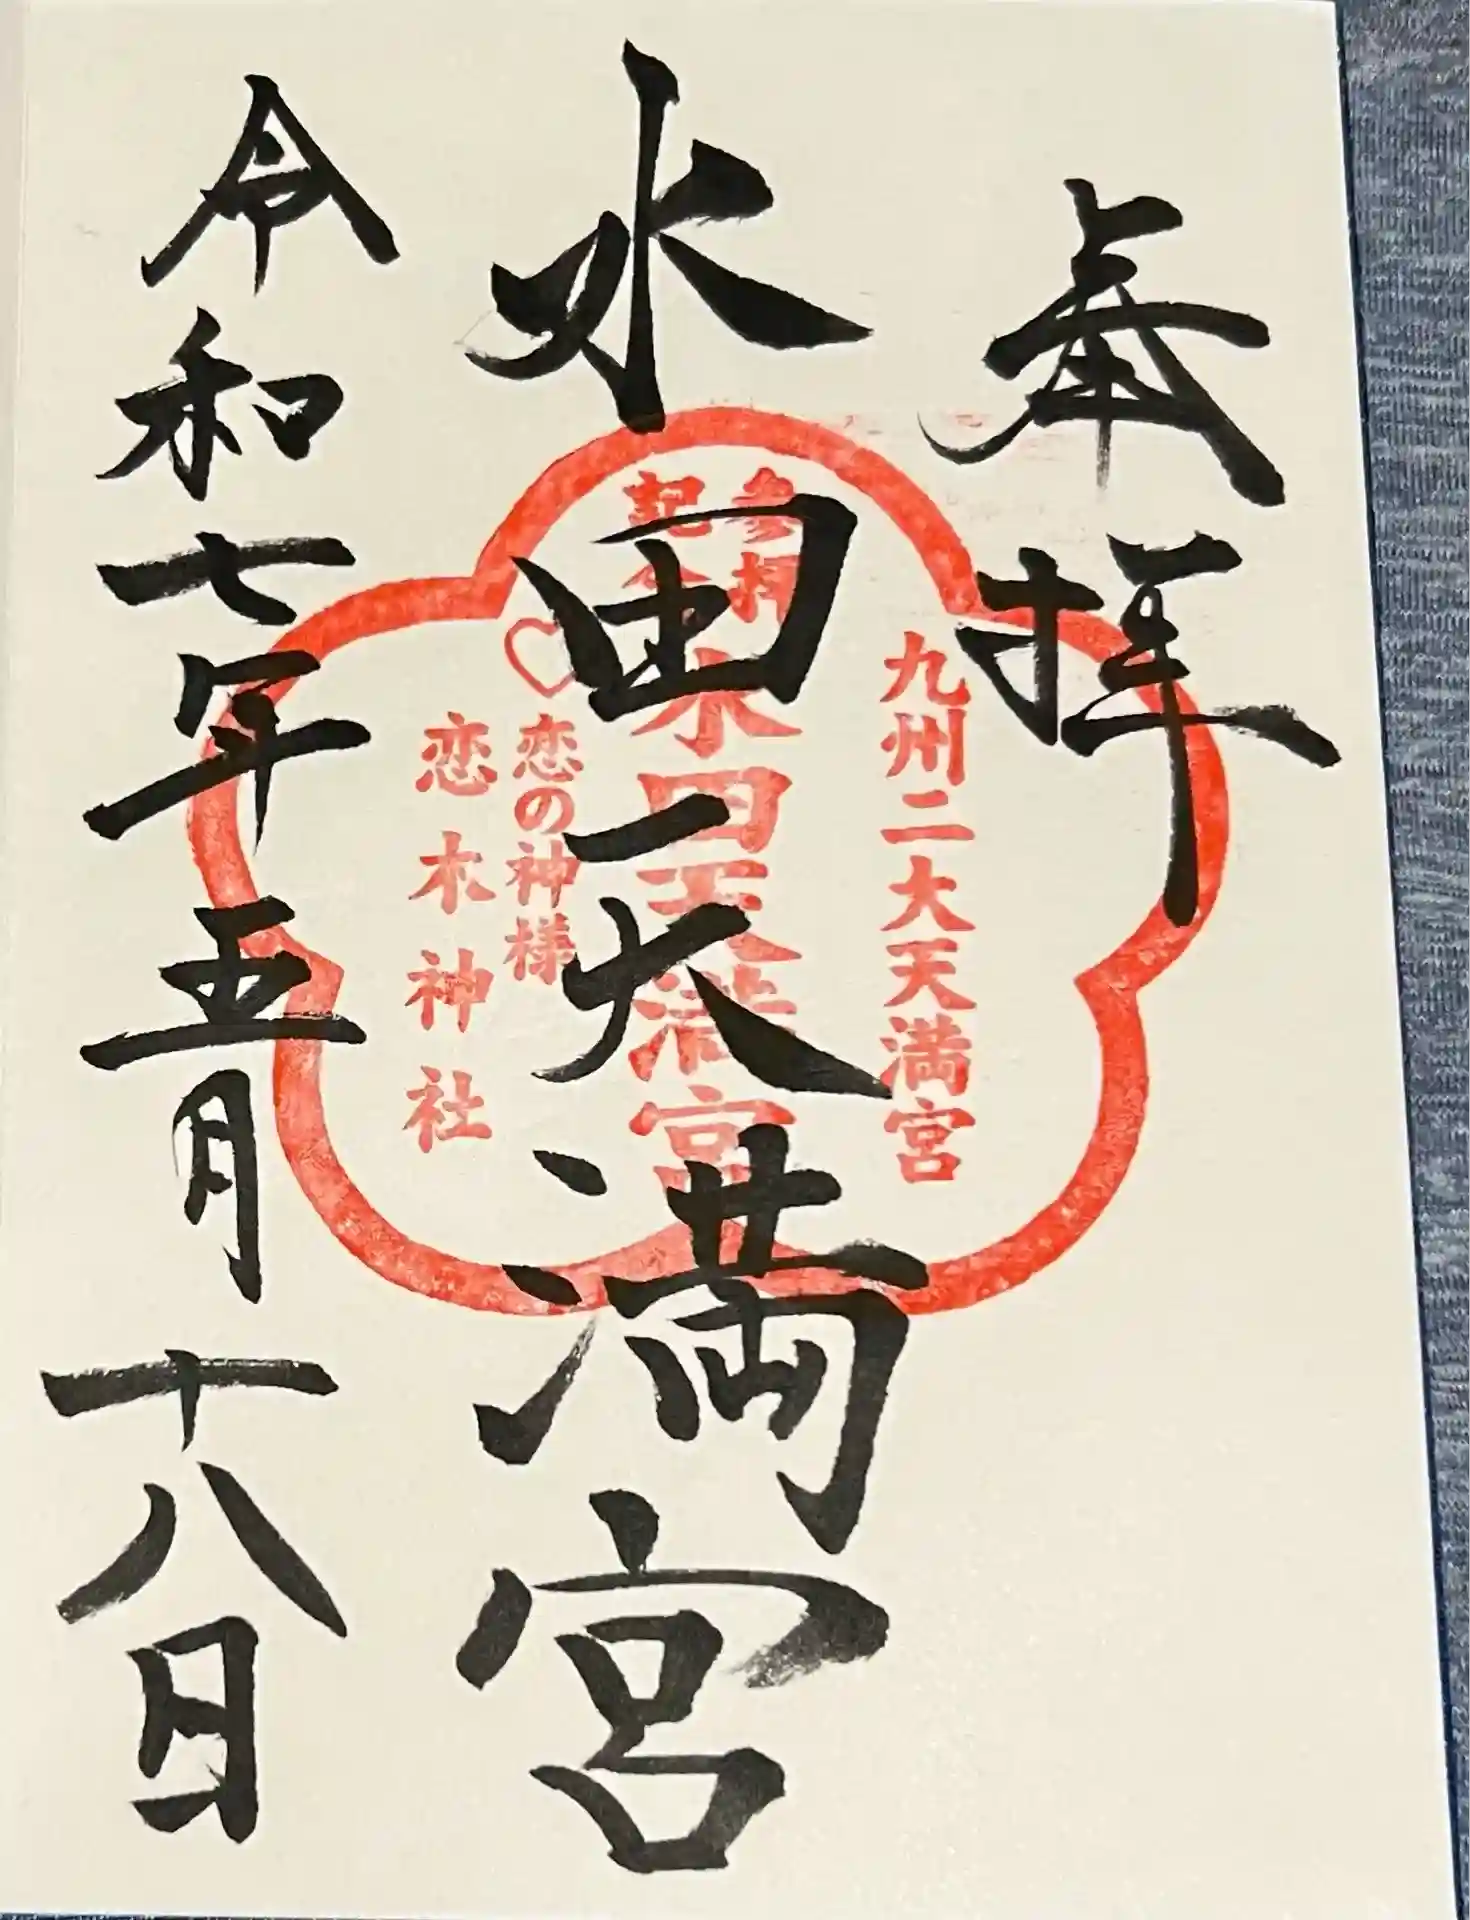 奉拝
水田天満宮
令和七年五月十八日
参拝
記念
九州二大天満宮
水田天満宮
恋の神様
恋木神社